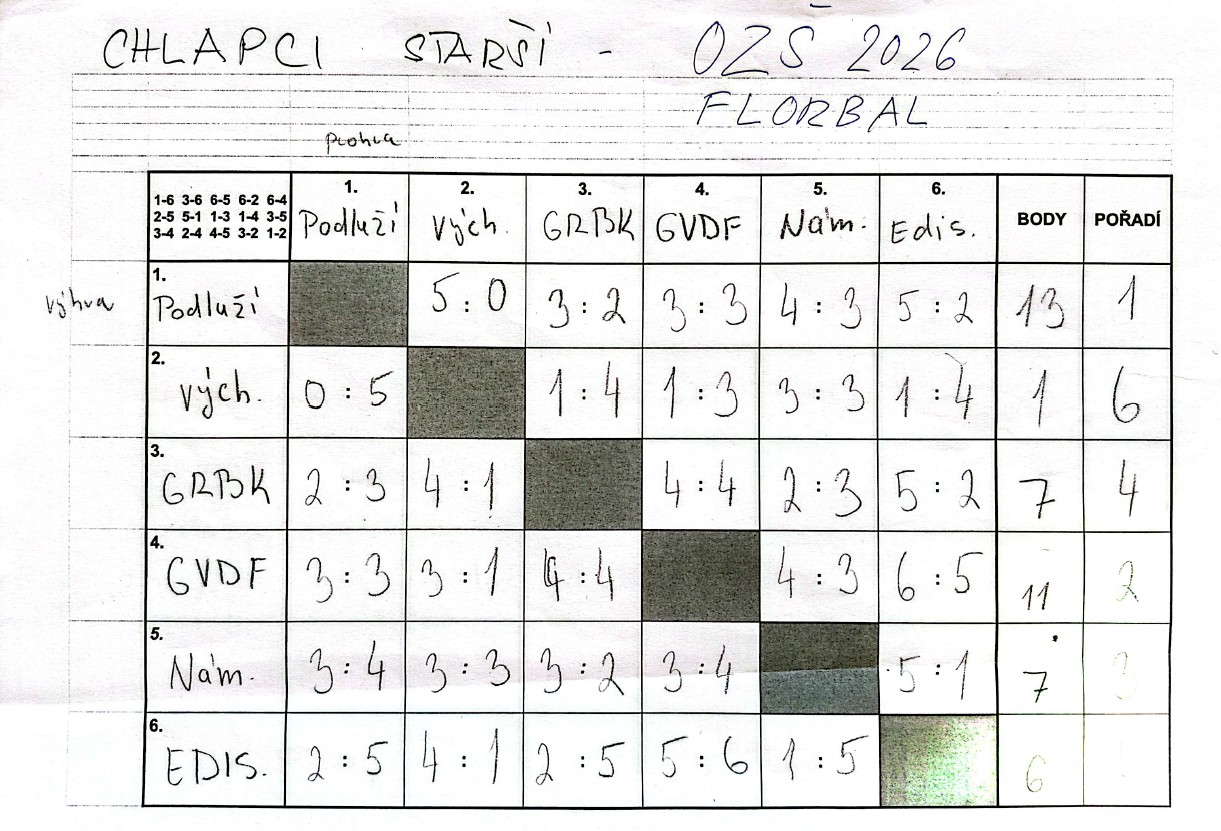 CHLAPCI STARŠÍ - OZŠ 2026
FLORBAL
prohra
1-6 3-6 6-5 6-2 6-4
2-5 5-1 1-3 1-4 3-5
3-4 2-4 4-5 3-2 1-2
1. 2. 3. 4. 5. 6.
Podluží Vých. GRBK GVDF Nám. Edis. BODY POŘADÍ
výhra
1.
Podluží 5:0 3:2 3:3 4:3 5:2 13 1
2.
Vých. 0:5 1:4 1:3 3:3 1:4 1 6
3.
GRBK 2:3 4:1 4:4 2:3 5:2 7 4
4.
GVDF 3:3 3:1 4:4 4:3 6:5 11 2
5.
Nám. 3:4 3:3 3:2 3:4 5:1 7 3
6.
EDIS. 2:5 4:1 2:5 5:6 1:5 6